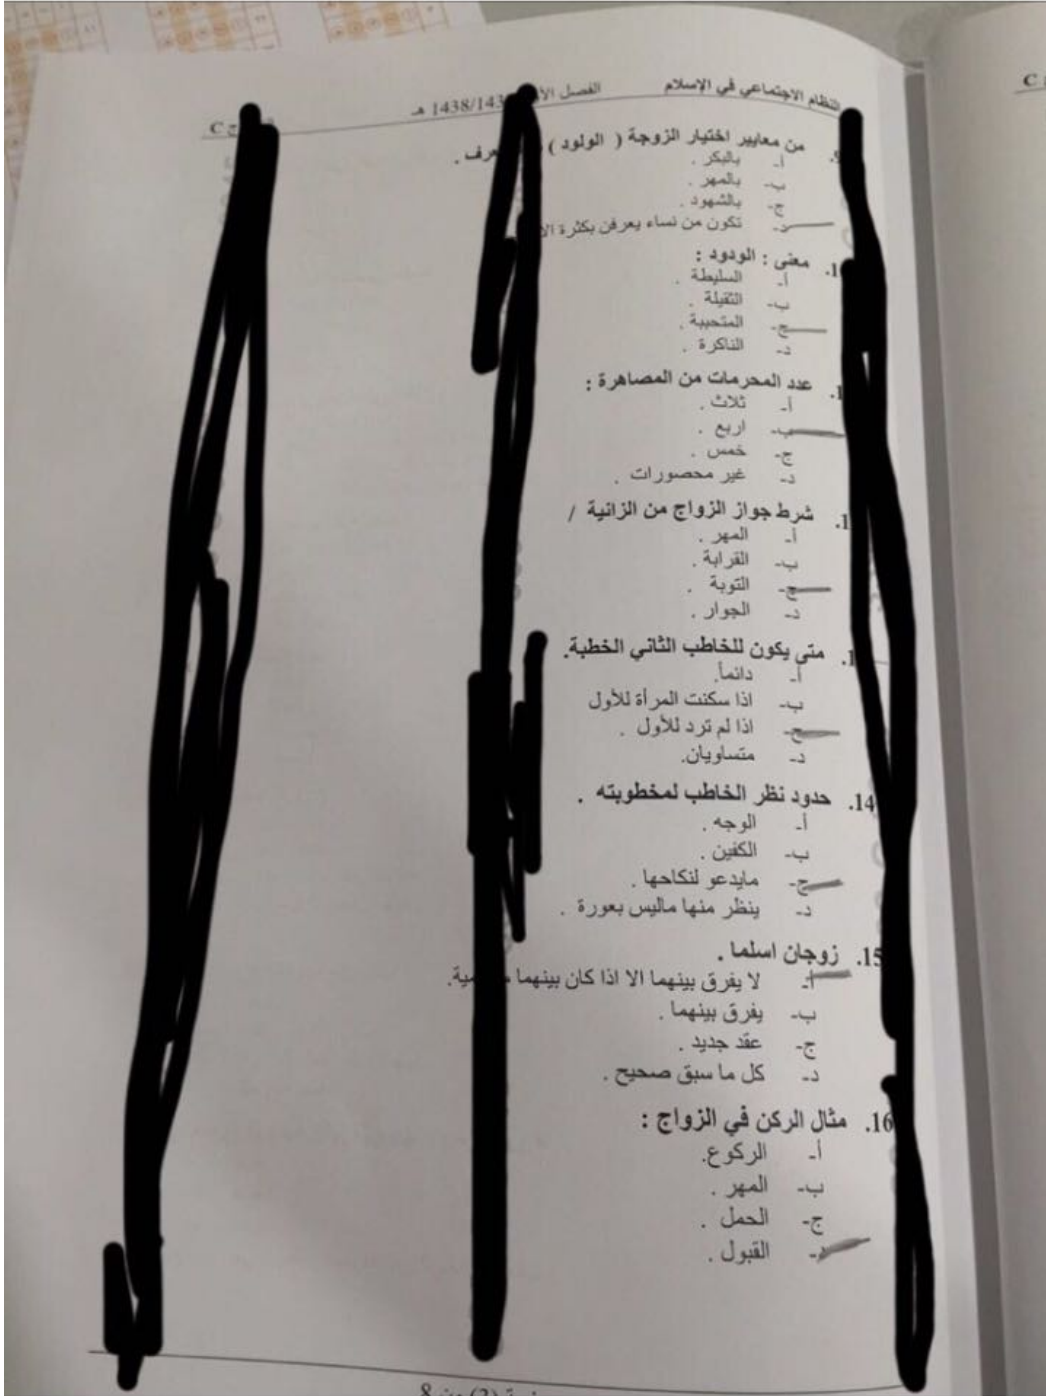 النظام الاجتماعي في الإسلام الفصل 1438/143 هـ C
من معايير اختيار الزوجة ( الولود )
أ- بالبكر .
ب- بالمهر .
ج- بالشهود .
د- تكون من نساء يعرفن بكثرة
معنى : الودود :
أ- السليطة .
ب- الثقيلة .
ج- المتحببة .
د- الناكرة .
عدد المحرمات من المصاهرة :
أ- ثلاث .
ب- اربع .
ج- خمس .
د- غير محصورات .
شرط جواز الزواج من الزانية /
أ- المهر .
ب- القرابة .
ج- التوبة .
د- الجوار .
متى يكون للخاطب الثاني الخطبة.
أ- دائماً.
ب- اذا سكنت المرأة للأول
ج- اذا لم ترد للأول .
د- متساويان.
14. حدود نظر الخاطب لمخطوبته .
أ- الوجه .
ب- الكفين .
ج- مايدعو لنكاحها .
د- ينظر منها ماليس بعورة .
15. زوجان اسلما .
أ- لا يفرق بينهما الا اذا كان بينهما
ب- يفرق بينهما .
ج- عقد جديد .
د- كل ما سبق صحيح .
16. مثال الركن في الزواج :
أ- الركوع.
ب- المهر .
ج- الحمل .
د- القبول .
(2) من 8
C